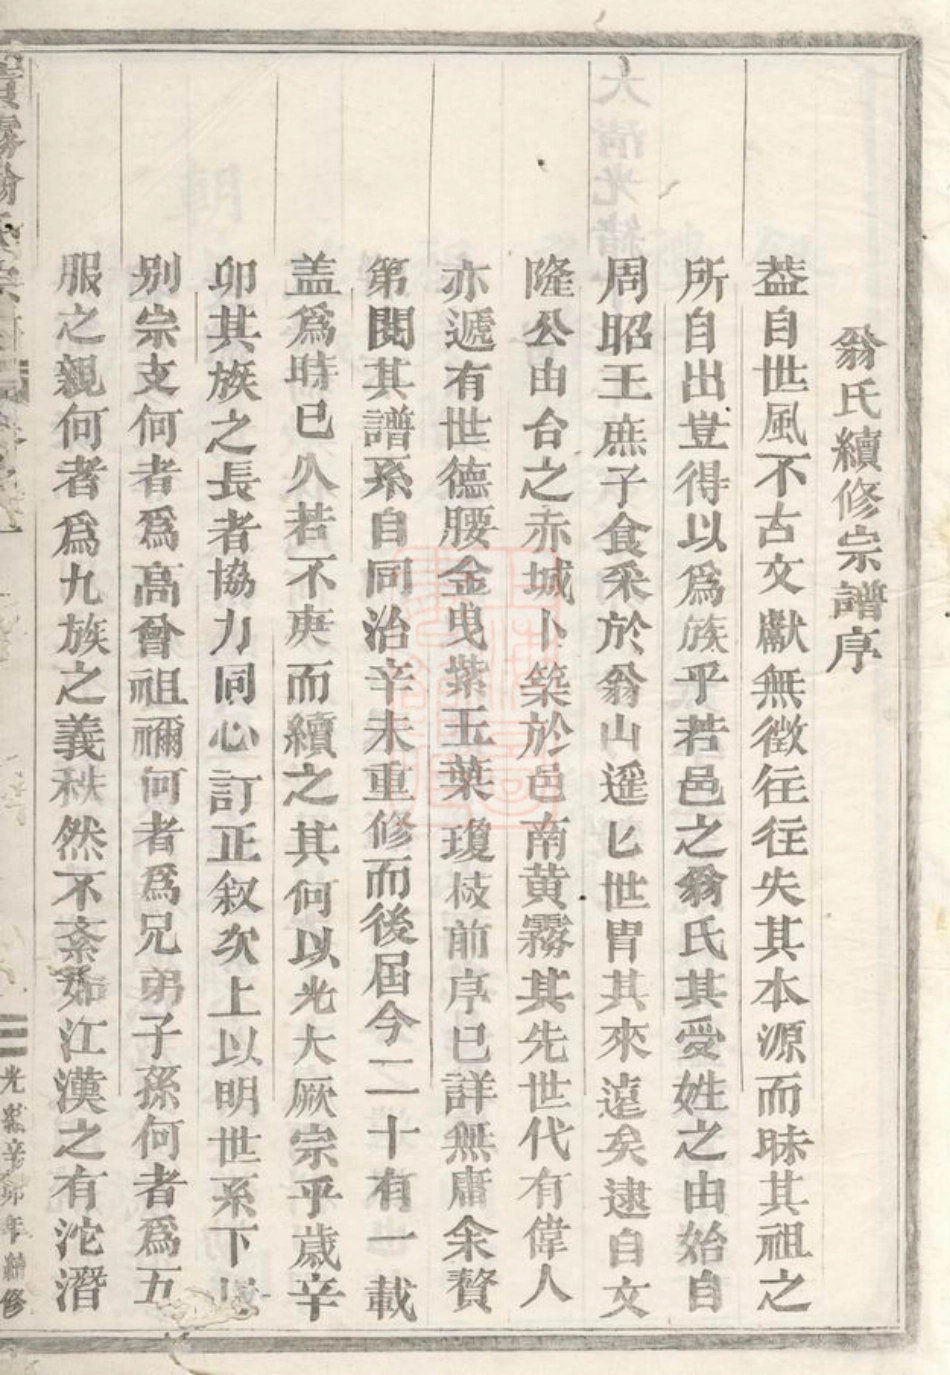 翁氏續修宗譜序
葢自世風不古文獻無徵往往失其本源而昧其祖之
所自出豈得以爲族乎若邑之翁氏其受姓之由始自
周昭王庶子食采於翁山遥匕世冑其來遠矣逮自文
隆公由台之赤城卜築於邑南黄霧其先世代有偉人
亦遞有世德腰金曳紫玉葉瓊枝前序已詳無庸余贅
第閱其譜系自同治辛未重修而後届今二十有一載
盖爲時已久若不庚而續之其何以光大厥宗乎歲辛
卯其族之長者協力同心訂正叙次上以明世系下以
别宗支何者爲高曾祖禰何者爲兄弟子孫何者爲五
服之親何者爲九族之義秩然不紊茹江漢之有沱潛
光緒辛卯年續修